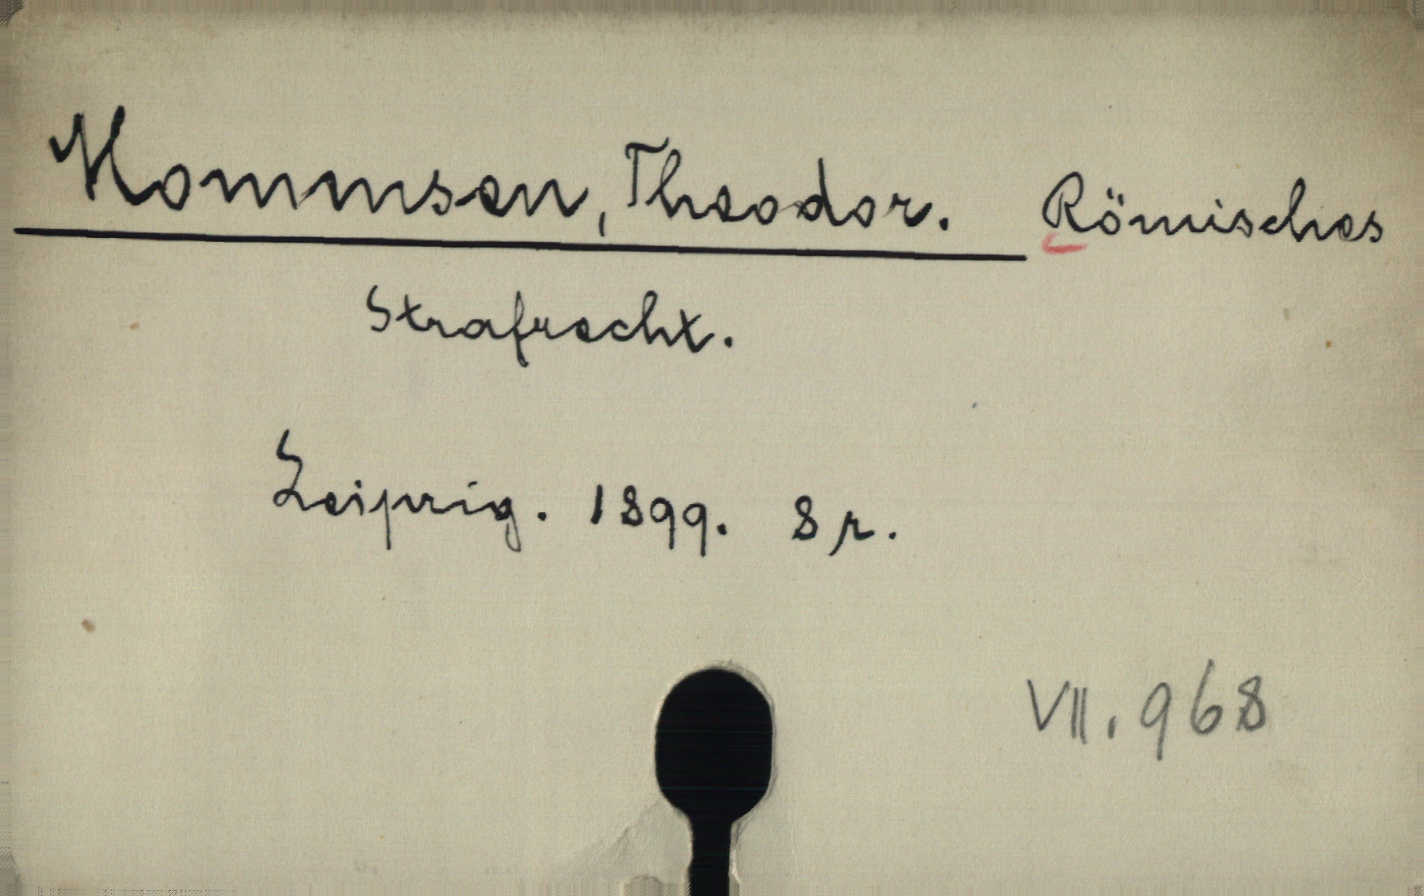 Mommsen, Theodor. Römisches
Strafrecht.
Leipzig. 1899. 8 r.
VII. 968